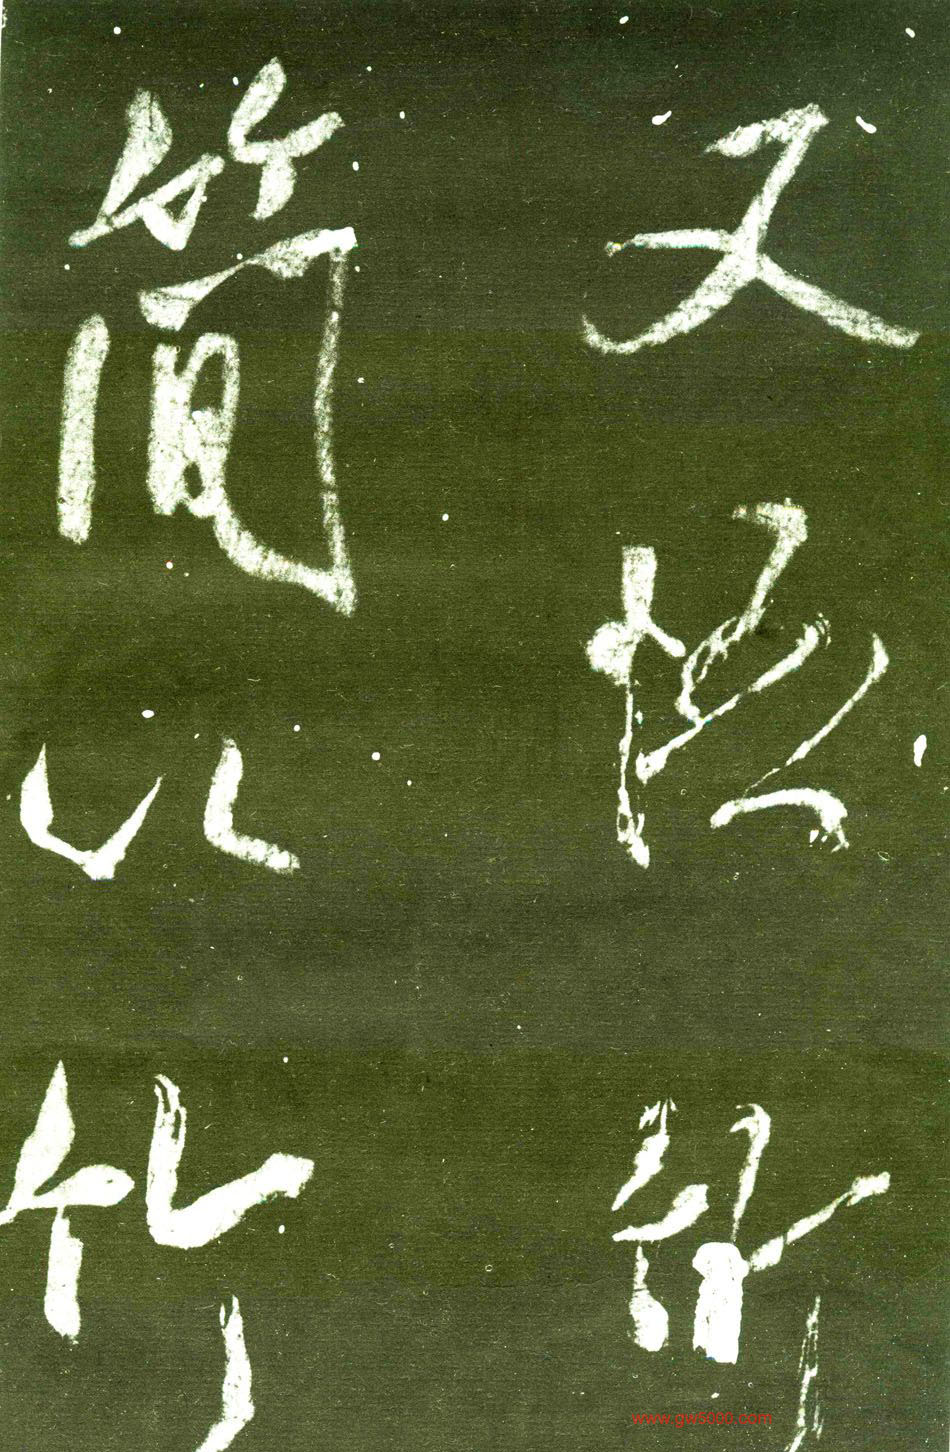 又 竹
简以竹
www.gw5000.com